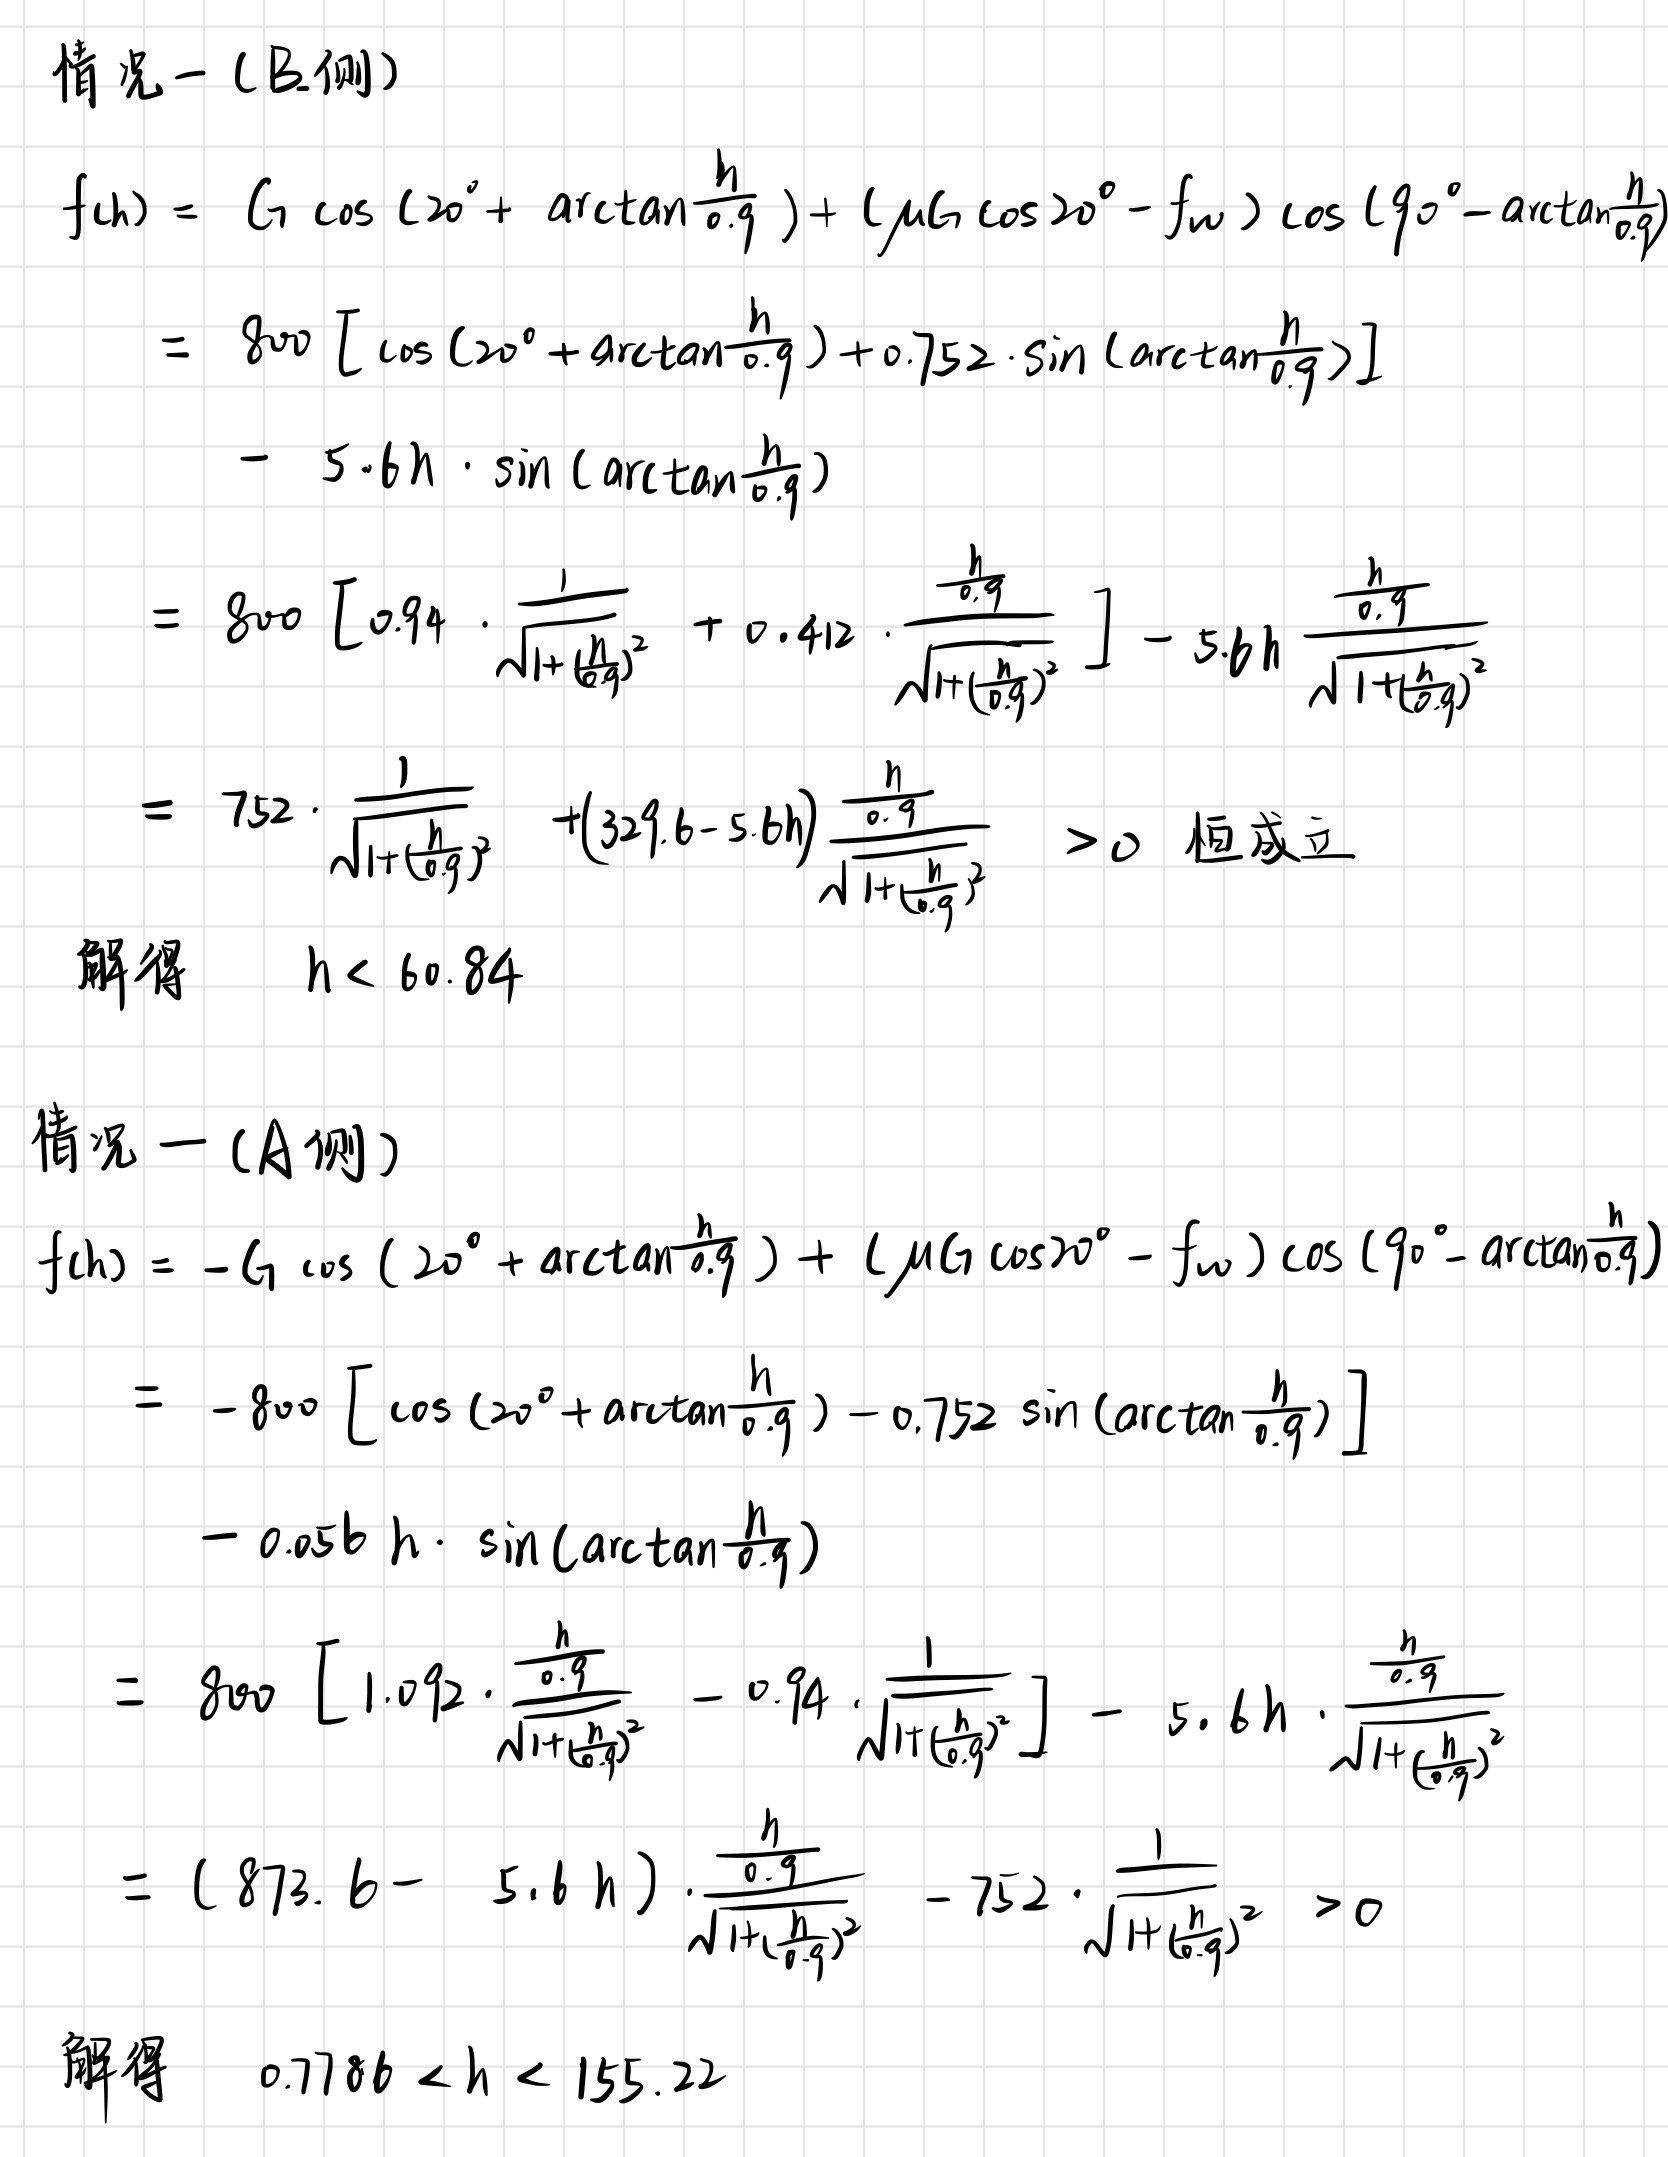 情况一(B侧)
f(h) = G cos (20° + arctan h/0.9) + (μG cos20° - fw) cos (90° - arctan h/0.9)
= 800 [cos (20° + arctan h/0.9) + 0.752 · sin (arctan h/0.9)]
- 5.6h · sin (arctan h/0.9)
= 800 [0.94 · 1/√(1+(h/0.9)²) + 0.412 · (h/0.9)/√(1+(h/0.9)²)] - 5.6h (h/0.9)/√(1+(h/0.9)²)
= 752 · 1/√(1+(h/0.9)²) + (329.6 - 5.6h) (h/0.9)/√(1+(h/0.9)²) > 0 恒成立
解得 h < 60.84
情况一(A侧)
f(h) = -G cos (20° + arctan h/0.9) + (μG cos20° - fw) cos (90° - arctan h/0.9)
= -800 [cos (20° + arctan h/0.9) - 0.752 sin (arctan h/0.9)]
- 0.056 h · sin(arctan h/0.9)
= 800 [1.092 · (h/0.9)/√(1+(h/0.9)²) - 0.94 · 1/√(1+(h/0.9)²)] - 5.6h · (h/0.9)/√(1+(h/0.9)²)
= (873.6 - 5.6h) · (h/0.9)/√(1+(h/0.9)²) - 752 · 1/√(1+(h/0.9)²) > 0
解得 0.7786 < h < 155.22